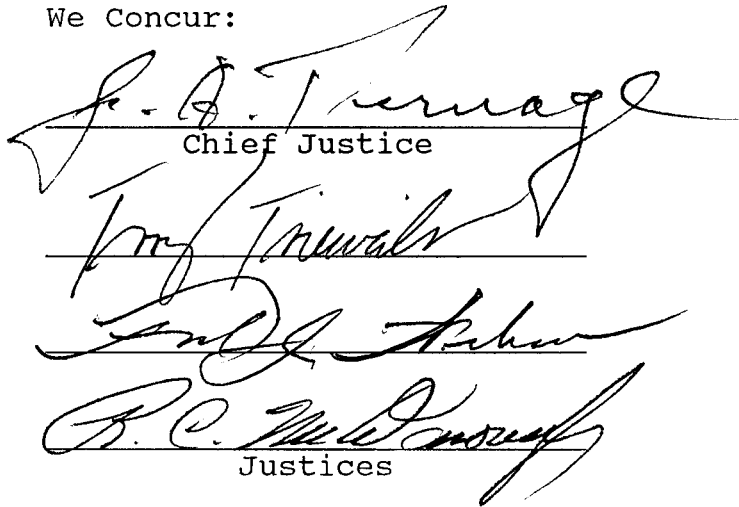 We Concur:
J. A. Turnage
Chief Justice
Terry Trieweiler
R. C. McDonough
Justices